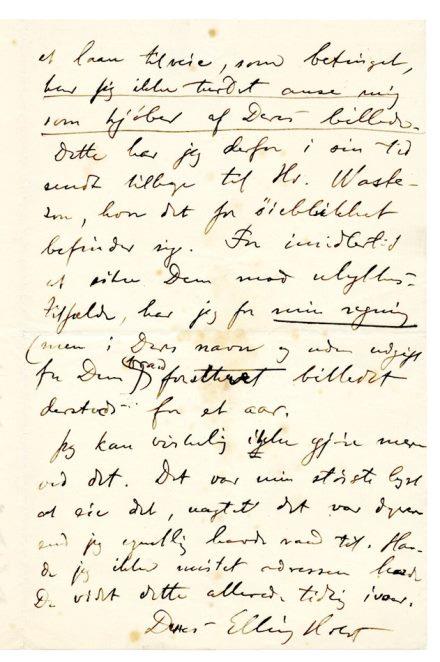 et laan tilveie, som betinget,
har jeg ikke turdet anse mig
som kjøber af Deres billede.
Dette har jeg derfor i sin tid
sendt tilbage til Hr. Waste-
son, hvor det for øieblikket
befinder sig. For imidlertid
at sikre Dem mod ulykkes-
tilfælde, har jeg for min regning
(men i Deres navn og uden udgift
for Dem) brand
forsikret billedet
dersteds for et aar.
Jeg kan virkelig ikke gjøre mere
ved det. Det var min største lyst
at eie det, uagtet det var dyrere
end jeg egentlig havde raad til. Hav-
de jeg ikke mistet adressen havde
De vidst dette allerede tidlig ivaar.
Deres Elling Holst